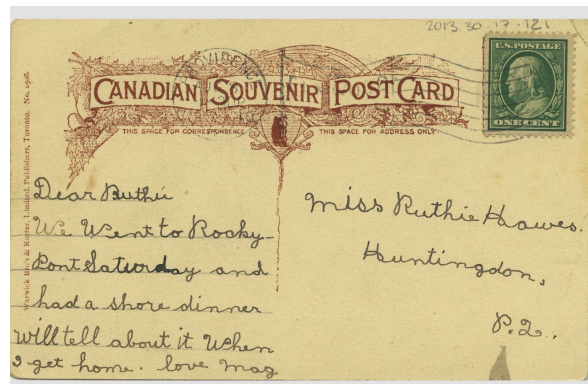 2013.30.17.121
U.S. POSTAGE
ONE CENT
PROVIDENCE
CANADIAN SOUVENIR POST CARD
THIS SPACE FOR CORRESPONDENCE
THIS SPACE FOR ADDRESS ONLY
Warwick Bro's & Rutter, Limited, Publishers, Toronto. No.
Dear Ruthie
We Went to Rocky
Pont Saturday and
had a shore dinner
will tell about it When
I get home. love Mag
Miss Ruthie Hawes.
Huntingdon,
P.Q.